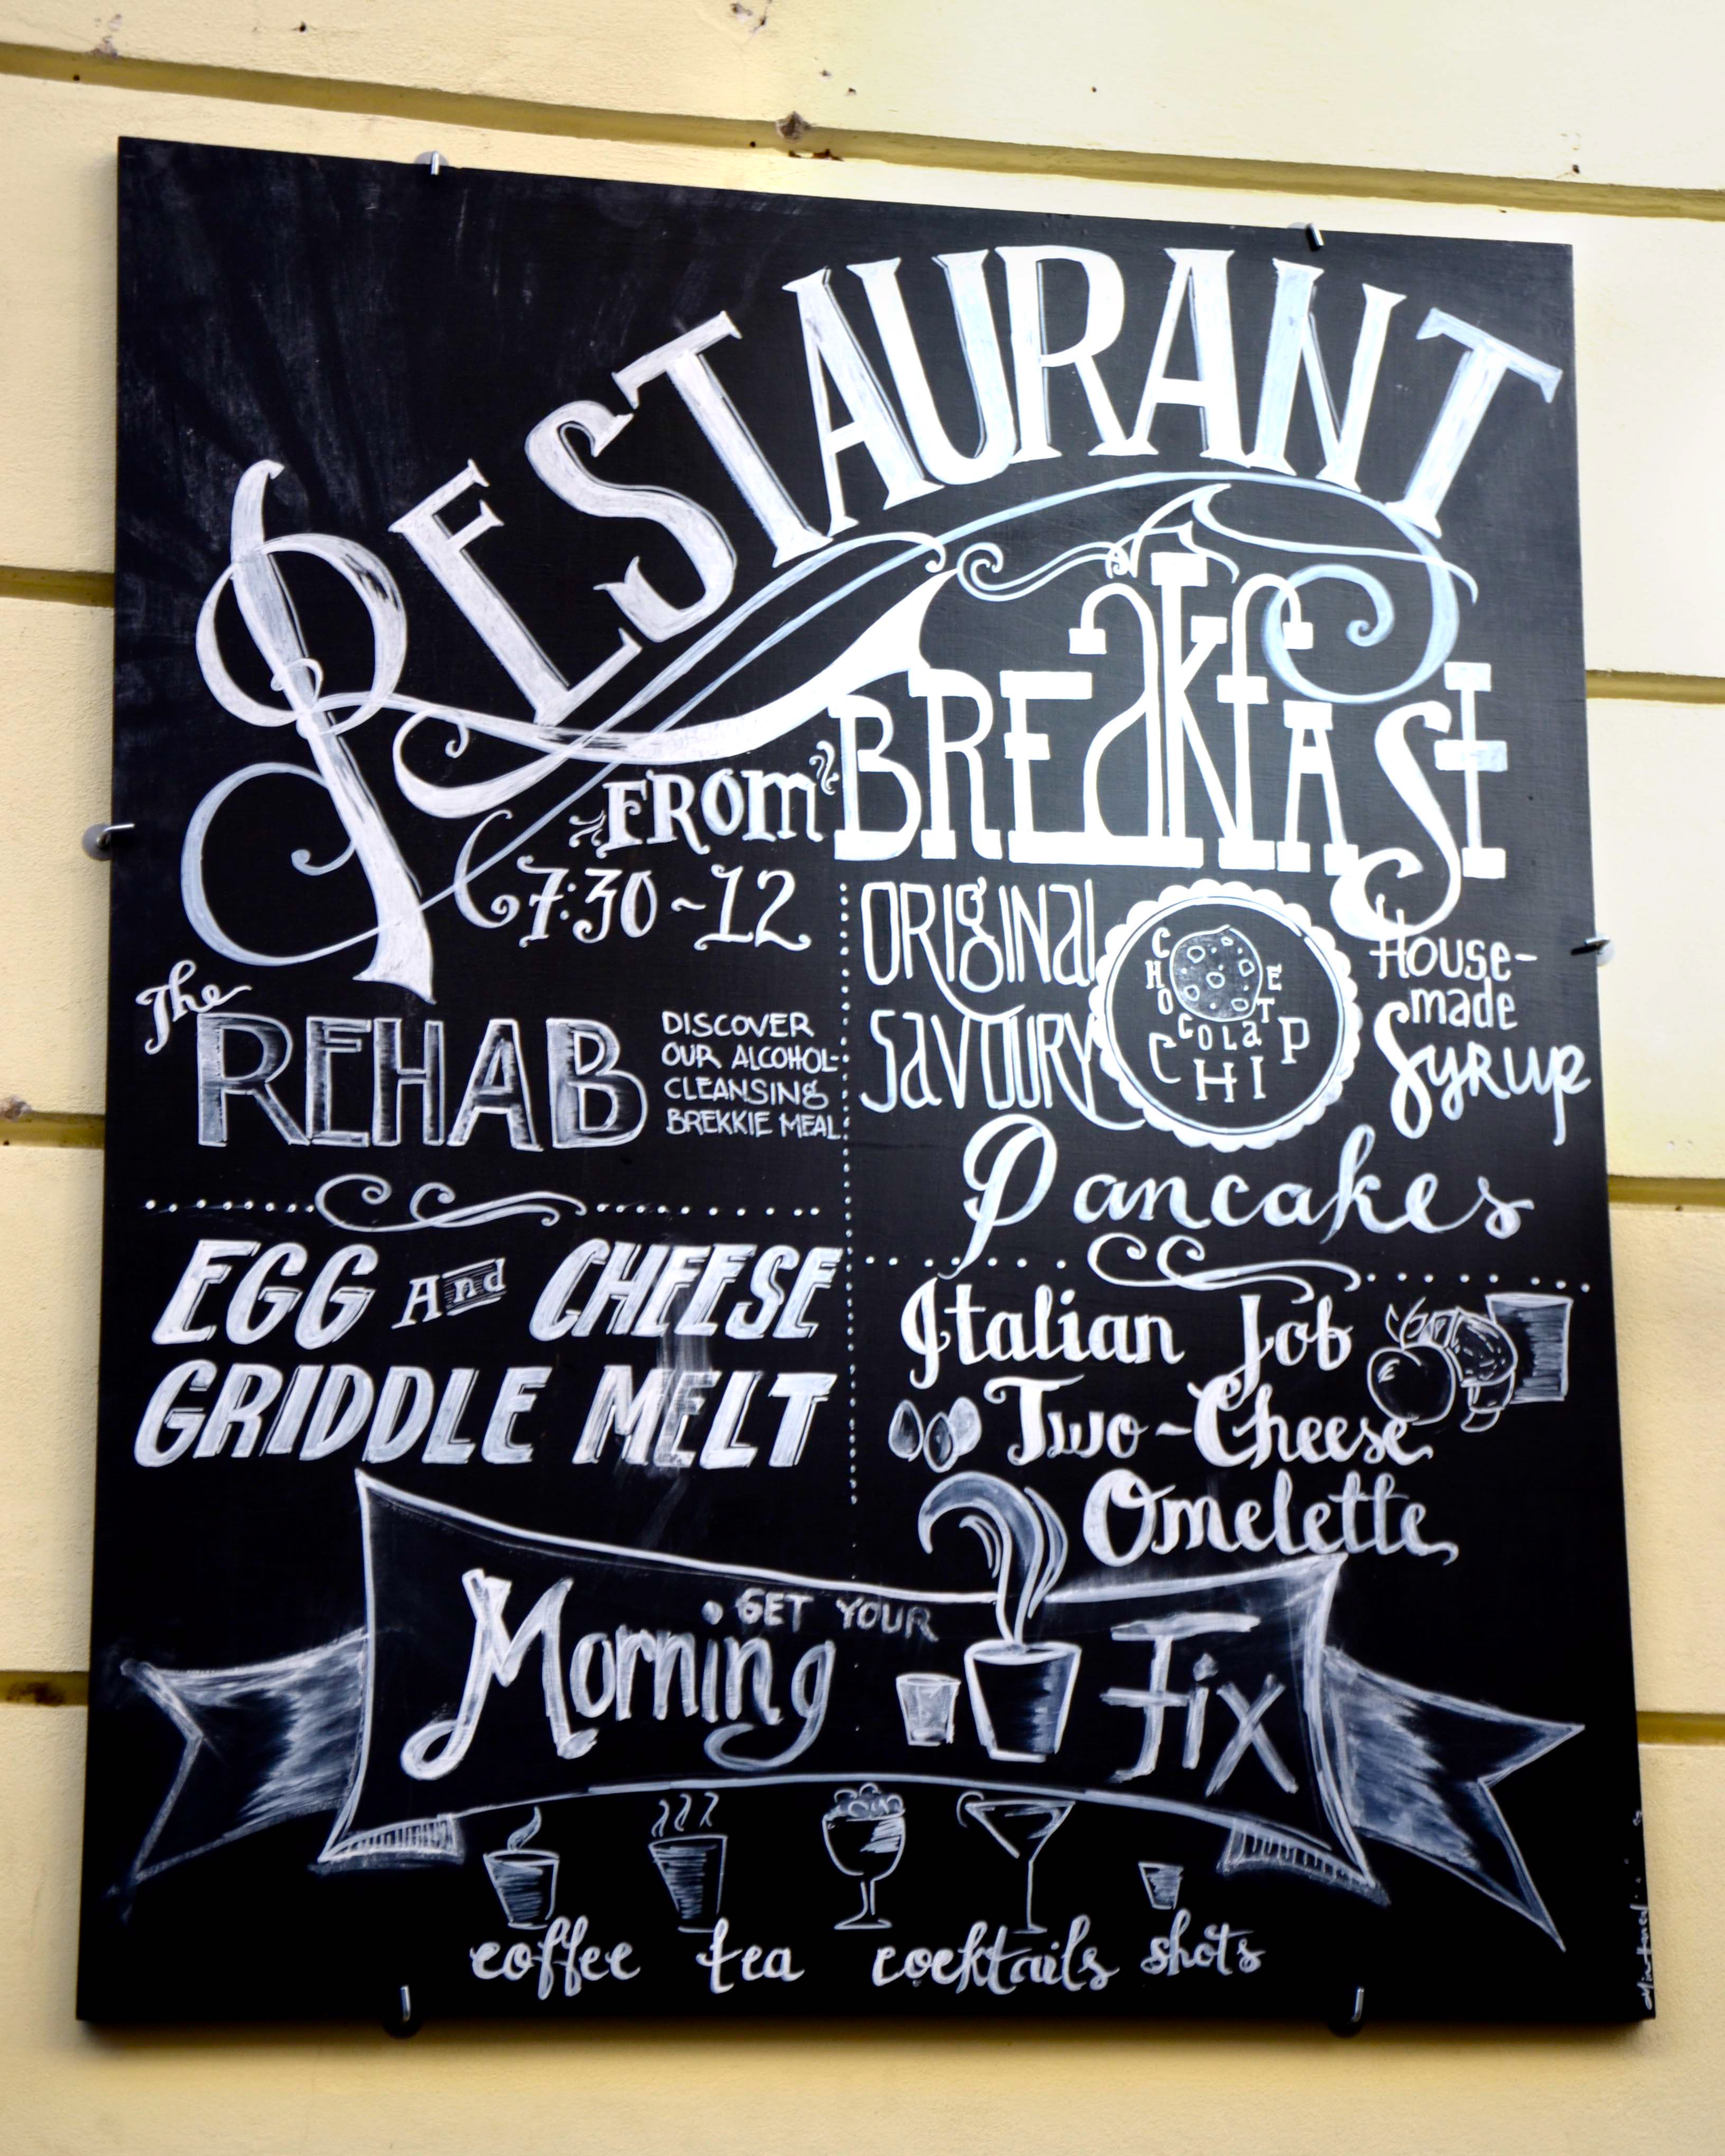 RESTAURANT
BREAKFAST
FROM
7:30~12
The
REHAB
DISCOVER
OUR ALCOHOL-
CLEANSING
BREKKIE MEAL
EGG And CHEESE
GRIDDLE MELT
ORIGINAL
SAVOURY
CHOCOLATE
CHIP
HOUSE-
made
SYRUP
Pancakes
Italian Job
Two-Cheese
Omelette
GET YOUR
Morning Fix
coffee tea cocktails shots